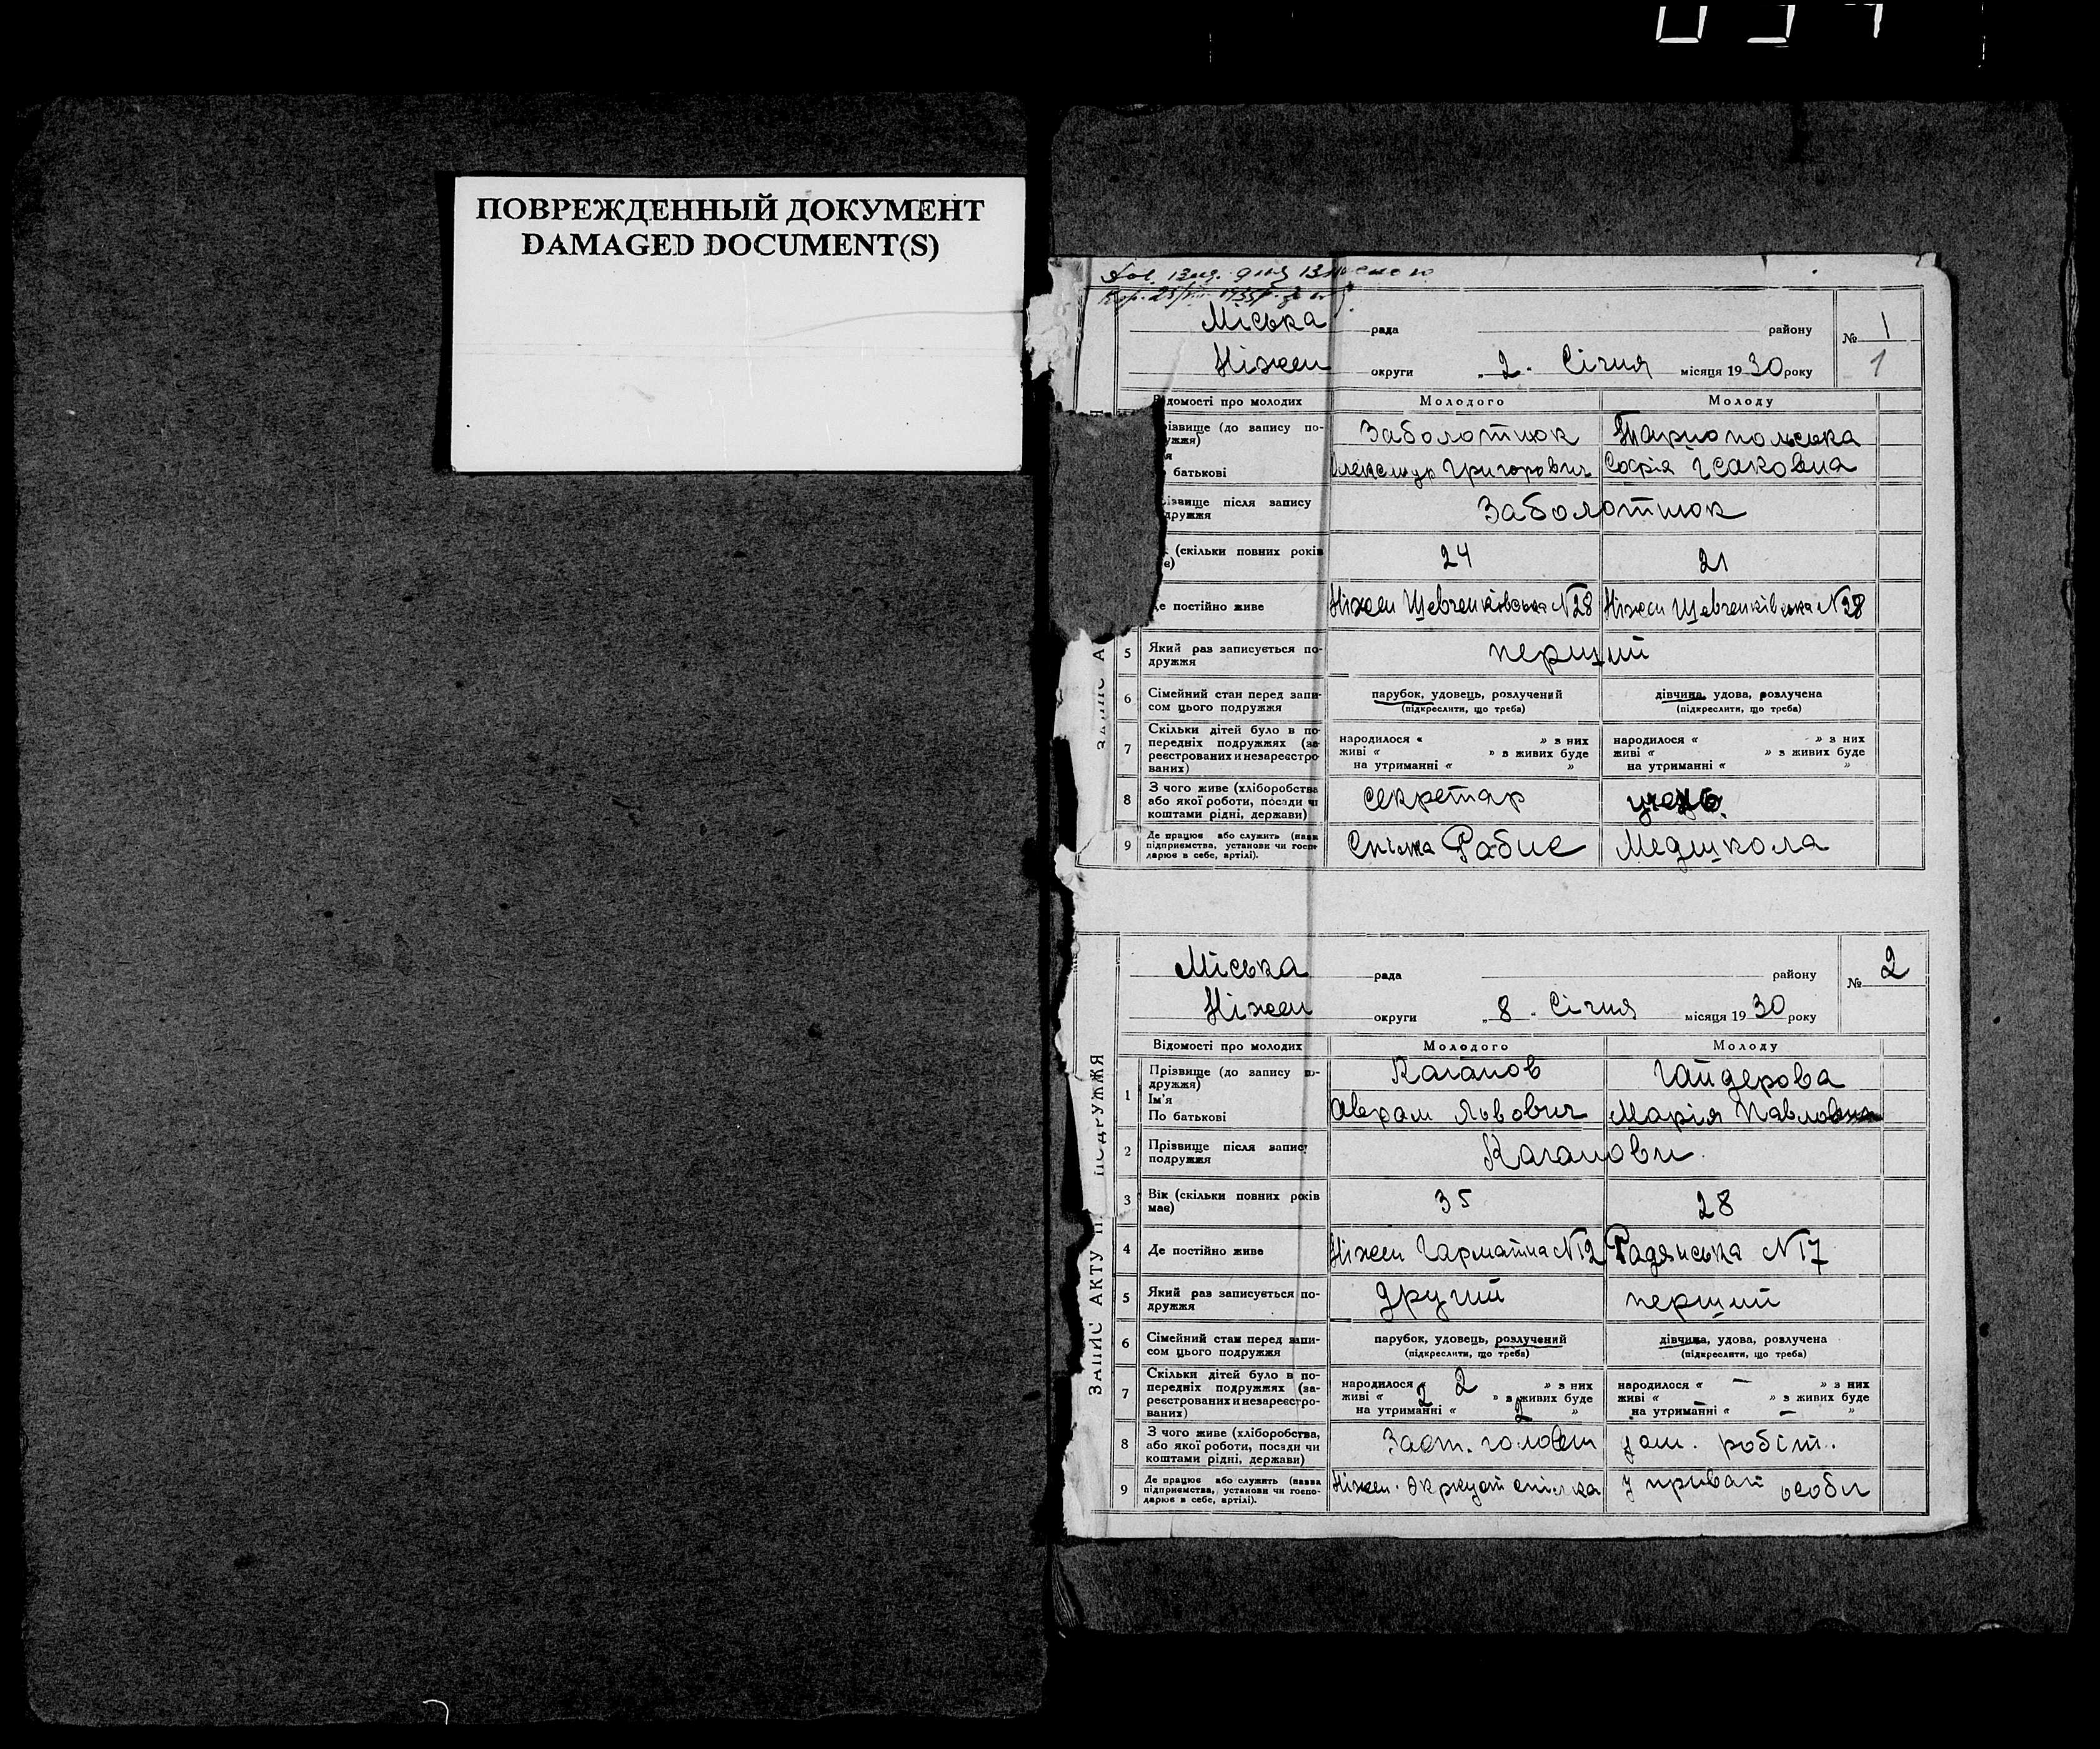 ПОВРЕЖДЕННЫЙ ДОКУМЕНТ
DAMAGED DOCUMENT(S)
Міська рада району № 1
Ніжен округи „ 2 „ Січня місяця 1930 року 1
Відомості про молодих Молодого Молоду
різвище (до запису по- Заболотнюк Тарнопольська
ужжя)
я
батькові Олександр Григорович Софія Ісаковна
ізвище після запису Заболотнюк
дружжя
(скільки повних років 24 21
є)
е постійно живе Ніжен Шевченківська N28 Ніжен Шевченківська N28
5 Який раз записується по- перший
дружжя
6 Сімейний стан перед запи- парубок, удовець, розлучений дівчина, удова, розлучена
сом цього подружжя (підкреслити, що треба) (підкреслити, що треба)
7 Скільки дітей було в по-
передніх подружжях (за- народилося « » з них народилося « » з них
реєстрованих и незареєстро- живі « » з живих буде живі « » з живих буде
ваних) на утриманні « » на утриманні « »
8 З чого живе (хліборобства секретар
або якої роботи, посади чи
коштами рідні, держави)
9 Де працює або служить (назва Спілка Рабис Медшкола
підприємства, установи чи госпо-
дарює в себе, артілі).
ЗАПИС АКТУ ПОДРУЖЖЯ
Міська рада району № 2
Ніжен округи „ 8 „ Січня місяця 1930 року
Відомості про молодих Молодого Молоду
1 Прізвище (до запису по- Каганов Гайдерова
дружжя)
Ім'я
По батькові Аврам Львович Марія Павловна
2 Прізвище після запису Каганови
подружжя
3 Вік (скільки повних років 35 28
має)
4 Де постійно живе Ніжен Гарматна N12 Радянська N17
5 Який раз записується по- другий перший
дружжя
6 Сімейний стан перед запи- парубок, удовець, розлучений дівчина, удова, розлучена
сом цього подружжя (підкреслити, що треба) (підкреслити, що треба)
7 Скільки дітей було в по-
передніх подружжях (за- народилося « 2 » з них народилося « — » з них
реєстрованих и незареєстро- живі « 2 » з живих буде живі « — » з живих буде
ваних) на утриманні « 2 » на утриманні « — »
8 З чого живе (хліборобства, Заст. голови дом. робіт.
або якої роботи, посади чи
коштами рідні, держави)
9 Де працює або служить (назва Ніжен. спілка У приват особи
підприємства, установи чи госпо-
дарює в себе, артілі).